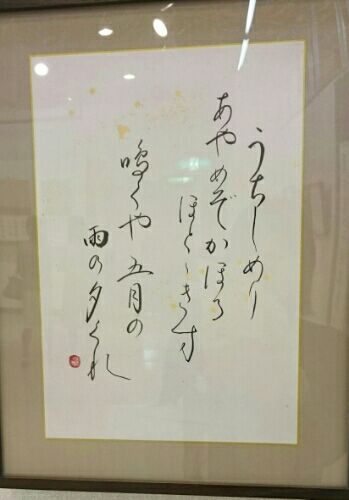 うちしめり
あやめぞかほる
ほとゝきす
鳴くや五月の
雨の夕くれ